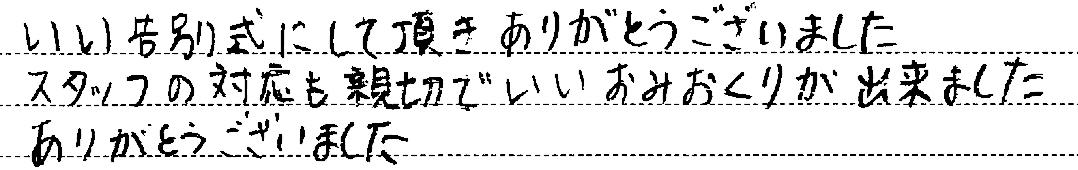 いい告別式にして頂きありがとうございました
スタッフの対応も親切でいいおみおくりが出来ました
ありがとうございました